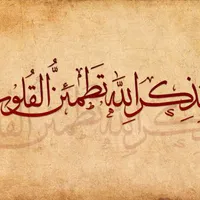 بذِكرِ اللَّهِ تَطْمَئِنُّ القُلُوب